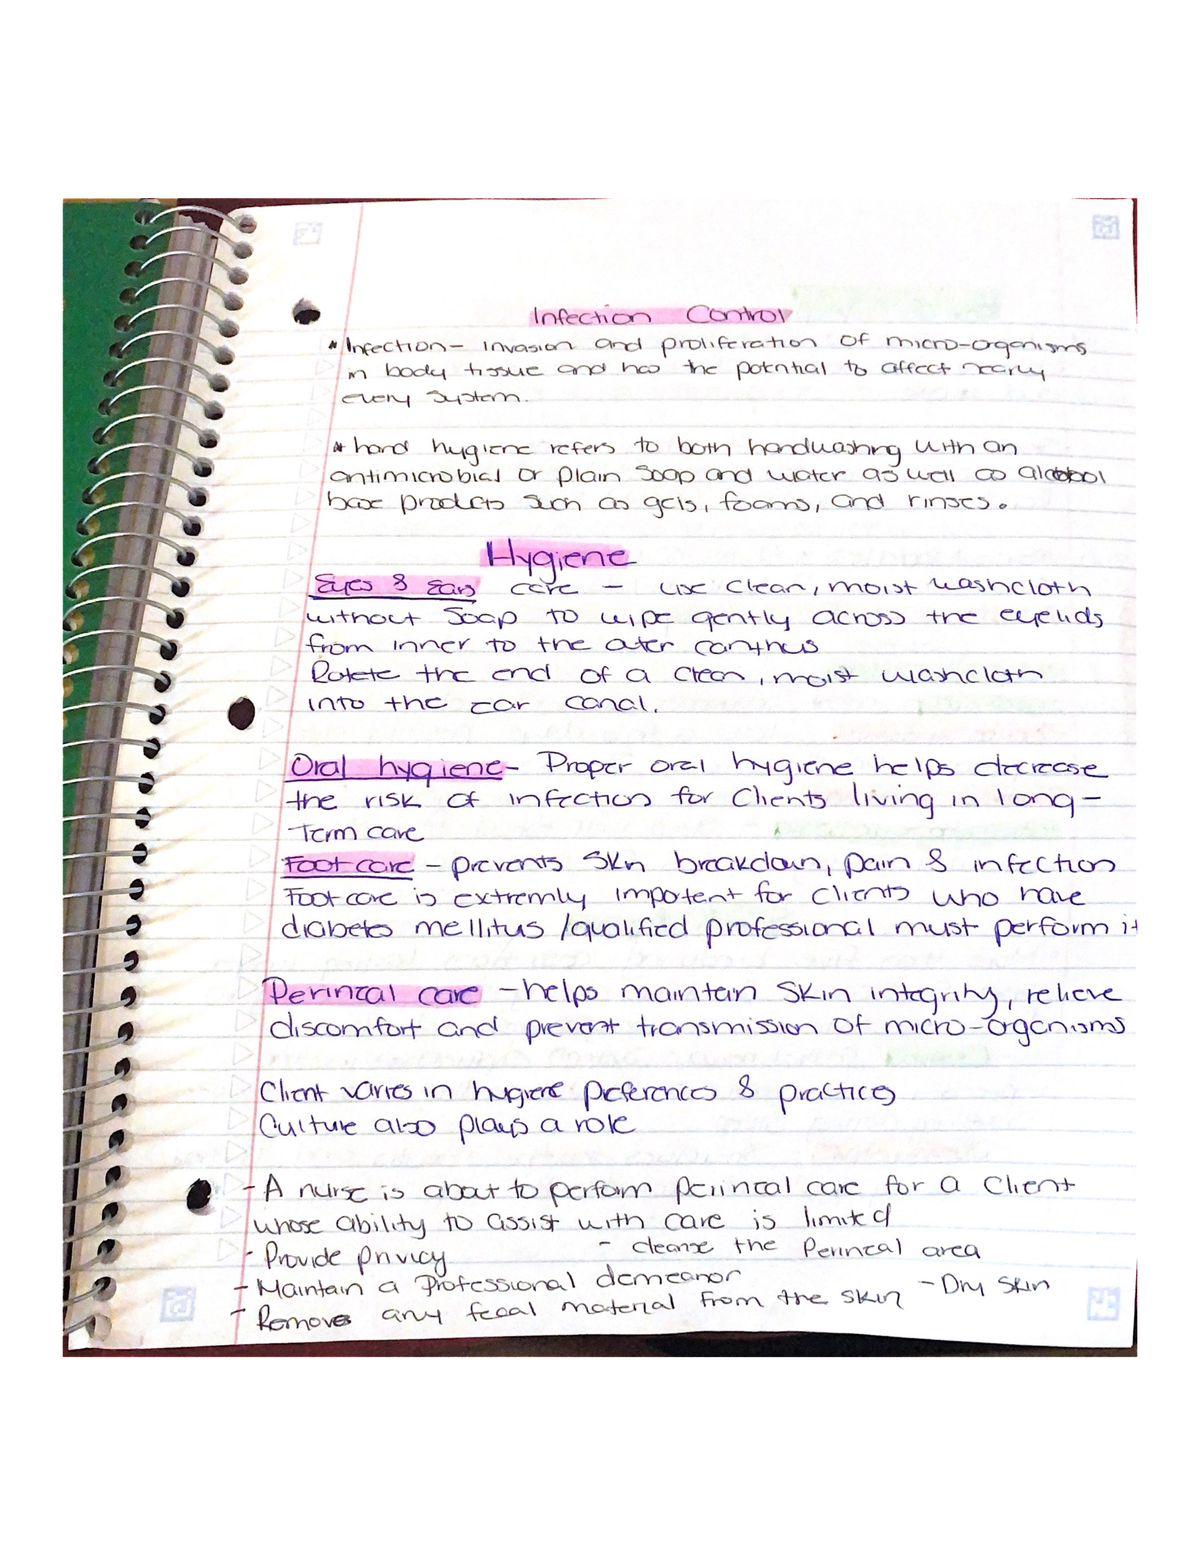 Infection Control
* Infection- invasion and proliferation of micro-organisms
in body tissue and has the potntial to affect nearly
every system.
* hand hygiene refers to both handwashing with an
antimicrobial or plain soap and water as well as alcohol
base products such as gels, foams, and rinses.
Hygiene
Eyes & Ears care - use clean, moist washcloth
without soap to wipe gently across the eyelids
from inner to the outer canthus
Rotate the end of a clean, moist washcloth
into the ear canal.
Oral hygiene- Proper oral hygiene helps decrease
the risk of infection for clients living in long-
Term care
Foot care - prevents skin breakdown, pain & infection
Foot care is extremly important for clients who have
diabetes mellitus /qualified professional must perform it
Perineal care -helps maintain skin integrity, relieve
discomfort and prevent transmission of micro-organisms
Client varies in hygiene preferences & practices
Culture also plays a role
-A nurse is about to perform perineal care for a client
whose ability to assist with care is limited
- Provide privicy - cleanse the Perineal area
- Maintain a Professional demeanor - Dry skin
- Removes any fecal material from the skin